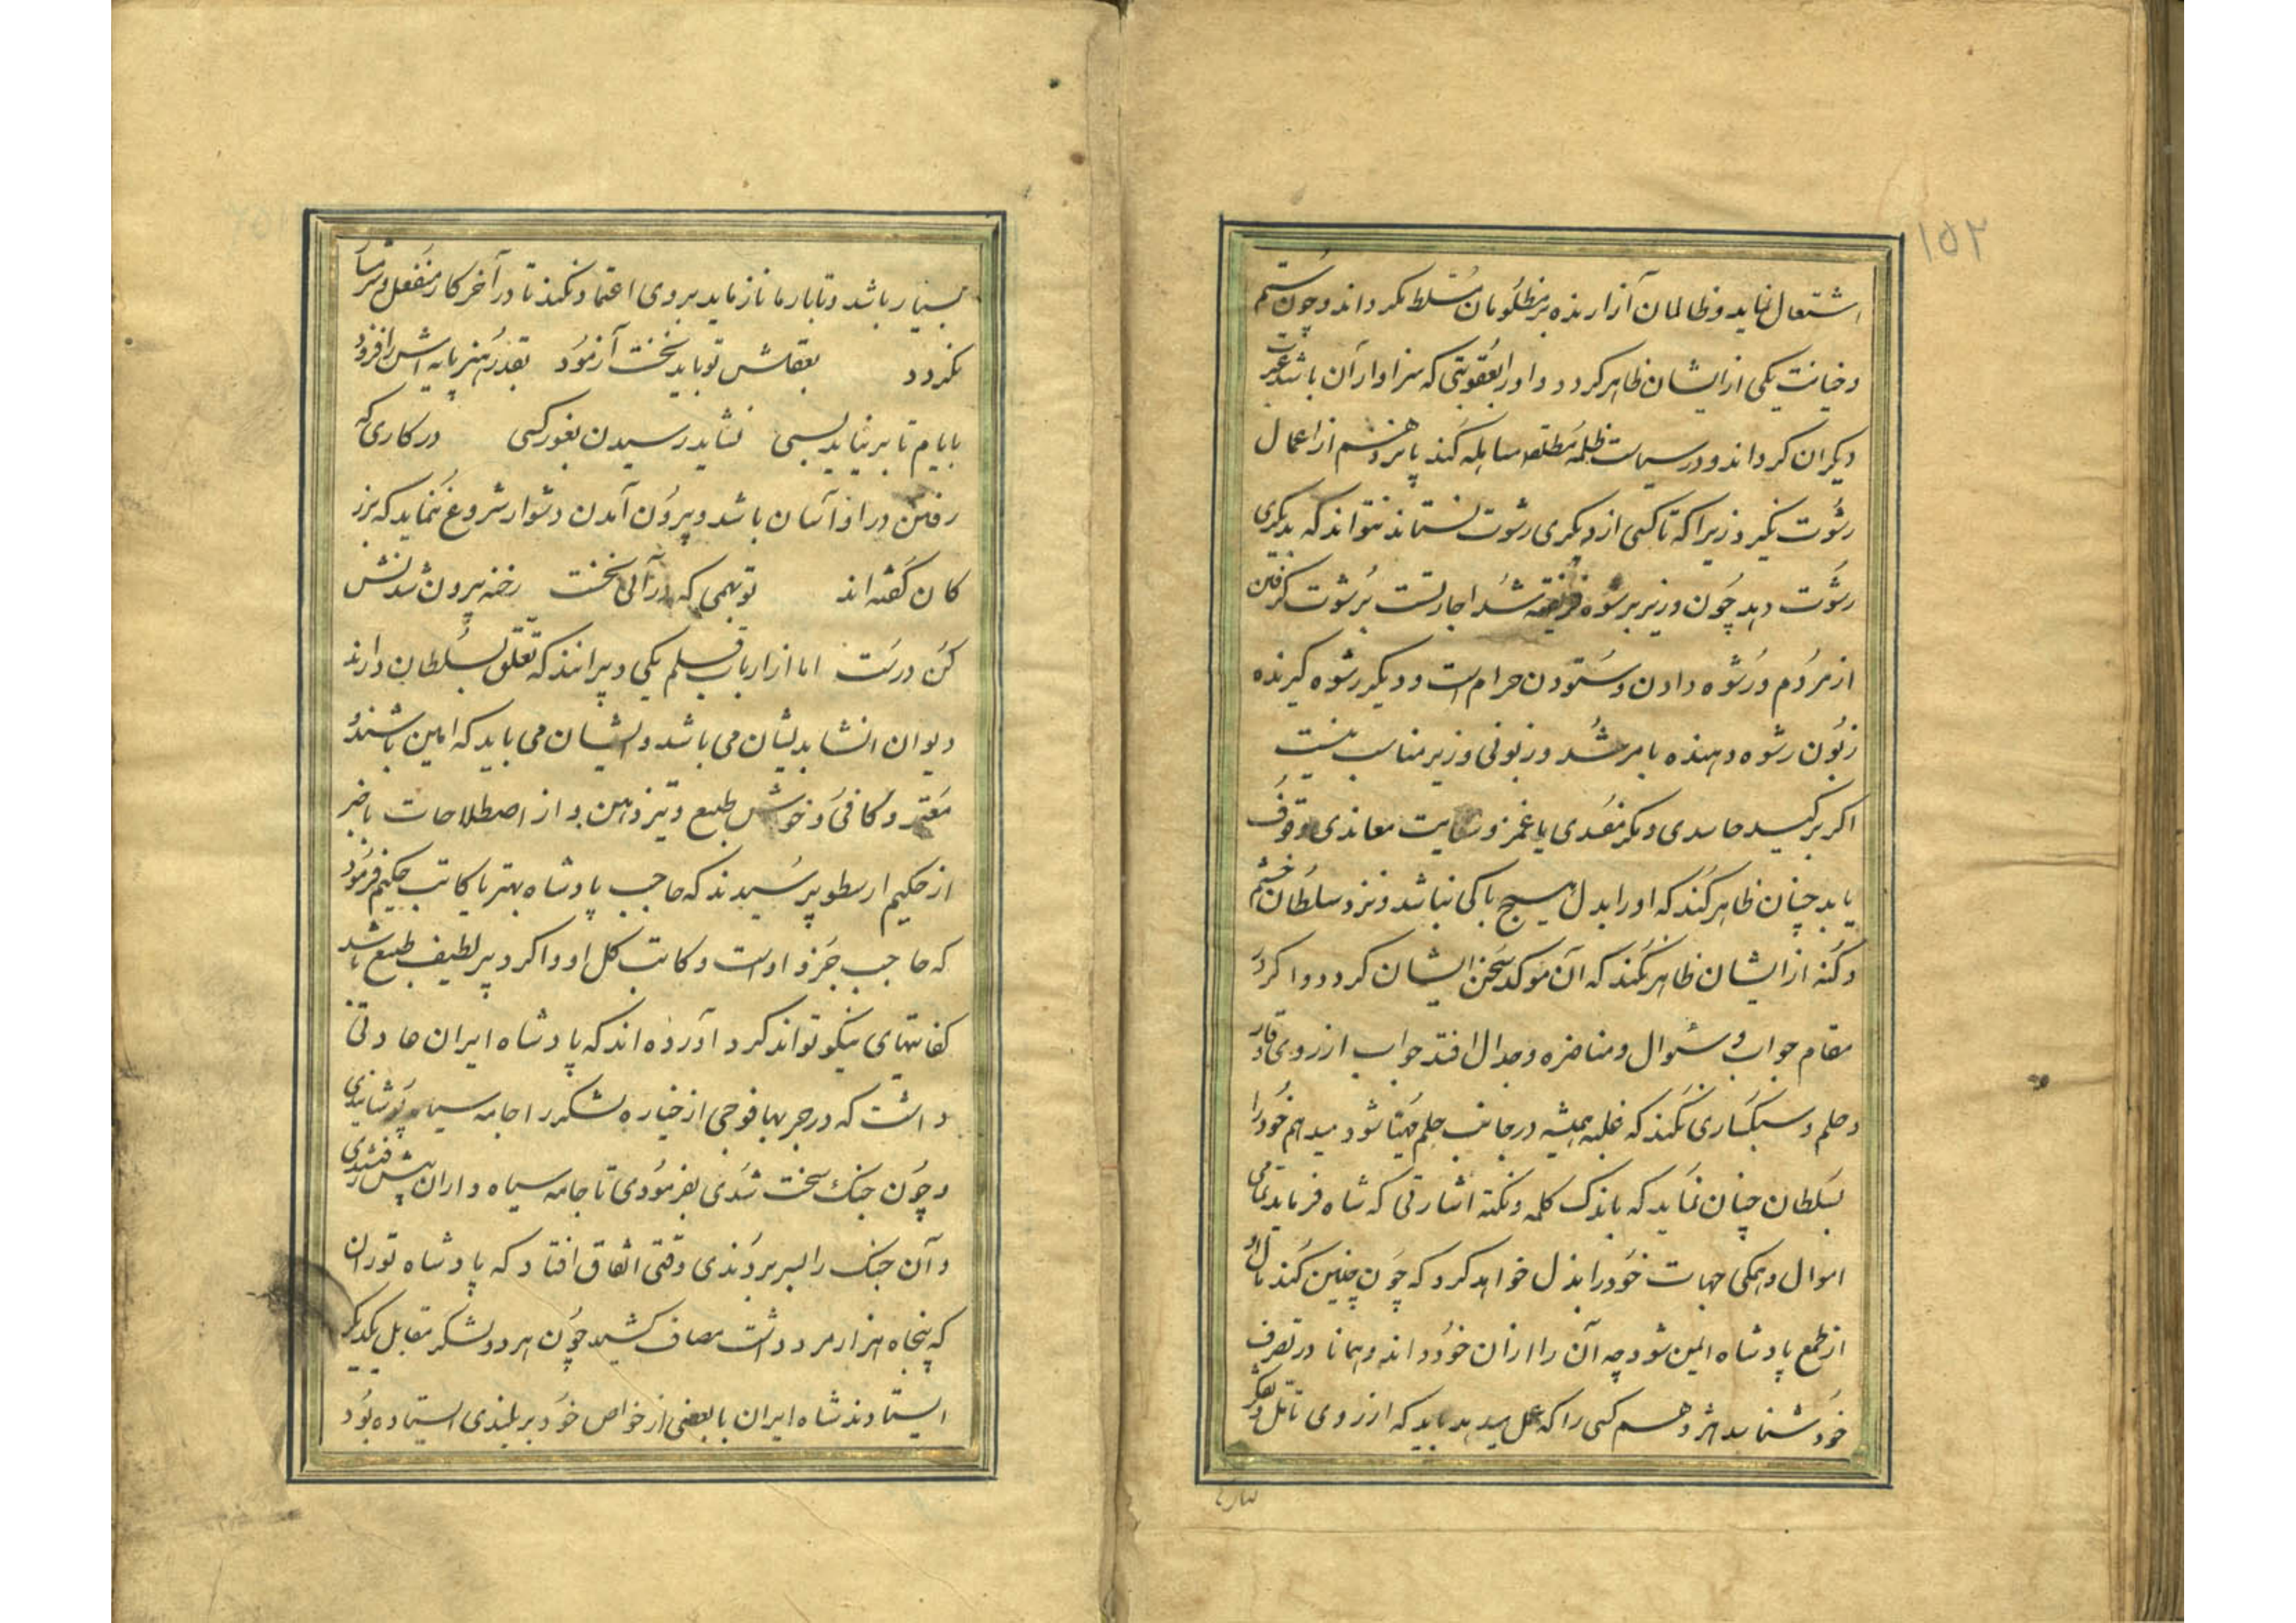 ۱۵۲
اشتعال نماید و ظالمان آزارنده بر مظلومان مسلط نکرداند و چون ستم
و خیانت یکی از ایشان ظاهر کردد و او را بعقوبتی که سزاوار آن باشد عبرت
دیکران کرداند و در سیاست ظلمه مطلقا مساهله نکند پانزدهم از اعمال
رشوت نکیرد زیرا که تا کسی از دیکری رشوت نستاند نتواند که بدیکری
رشوت دهد چون وزیر برشوه فریفته شد اجازتست برشوت کرفتن
از مردم و رشوه دادن و ستودن حرام است و دیکر رشوه کیرنده
زبون رشوه دهنده باشد و زبونی وزیر مناسب نیست
اکر بر کید حاسدی و مکر مفسدی یا غمز و سعایت معاندی وقوف
یابد چنان ظاهر کند که او را بدل هیچ باکی نباشد و نزد سلطان خشم
و کنه از ایشان ظاهر نکند که آن موکد سخن ایشان کردد و اکر در
مقام جواب و سئوال و مناضره و جدال افتد جواب از روی وقار
و حلم و سبکساری نکند که غلبه همیشه در جانب حلم مهیا شود سیدهم خود را
بسلطان چنان نماید که باندک کلمه و نکته اشارتی که شاه فرماید تمامی
اموال و همکی جهات خود را بذل خواهد کرد که چون چنین کند مال او
از طمع پادشاه ایمن شود چه آن را از آن خود داند و همانا در تصرف
خود شناسد هژدهم کسی را که عمل میدهد باید که از روی تامل و تفکر
بسیار
بسیار باشد و تا بارها نازماید بر وی اعتماد نکند تا در آخر کار منفعل و شرمسار
نکردد بعقلش تو باید نخست آزمود بقدر هنر پایه اش را فزود
بایام تا بر نیاید بسی نشاید رسیدن بغور کسی در کاری که
رفتن در او آسان باشد و بیرون آمدن دشوار شروع ننماید که بزر
کان کفته اند تو بهمی که در آئی نخست رخنه بیرون شدنش
کن درست اما از ارباب قلم یکی دبیرانند که تعلق بسلطان دارند
دیوان انشا بدیشان می باشد و ایشان می باید که امین باشند و
معتمد و کافی و خوش طبع و تیز ذهن و از اصطلاحات با خبر
از حکیم ارسطو پرسیدند که حاجب پادشاه بهتر یا کاتب حکیم فرمود
که حاجب جزو اوست و کاتب کل او و اکر دبیر لطیف طبع باشد
کفایتهای نیکو تواند کرد آورده اند که پادشاه ایران عادتی
داشت که در حربها فوجی از خیاره لشکر را جامه سیاه پوشانیدی
و چون جنک سخت شدی بفرمودی تا جامه سیاه داران پیش رفتندی
و آن جنک را بسر بردندی وقتی اتفاق افتاد که پادشاه توران
که پنجاه هزار مرد داشت مصاف کشید چون هر دو لشکر مقابل یکدیکر
ایستادند شاه ایران با بعضی از خواص خود بر بلندی ایستاده بود